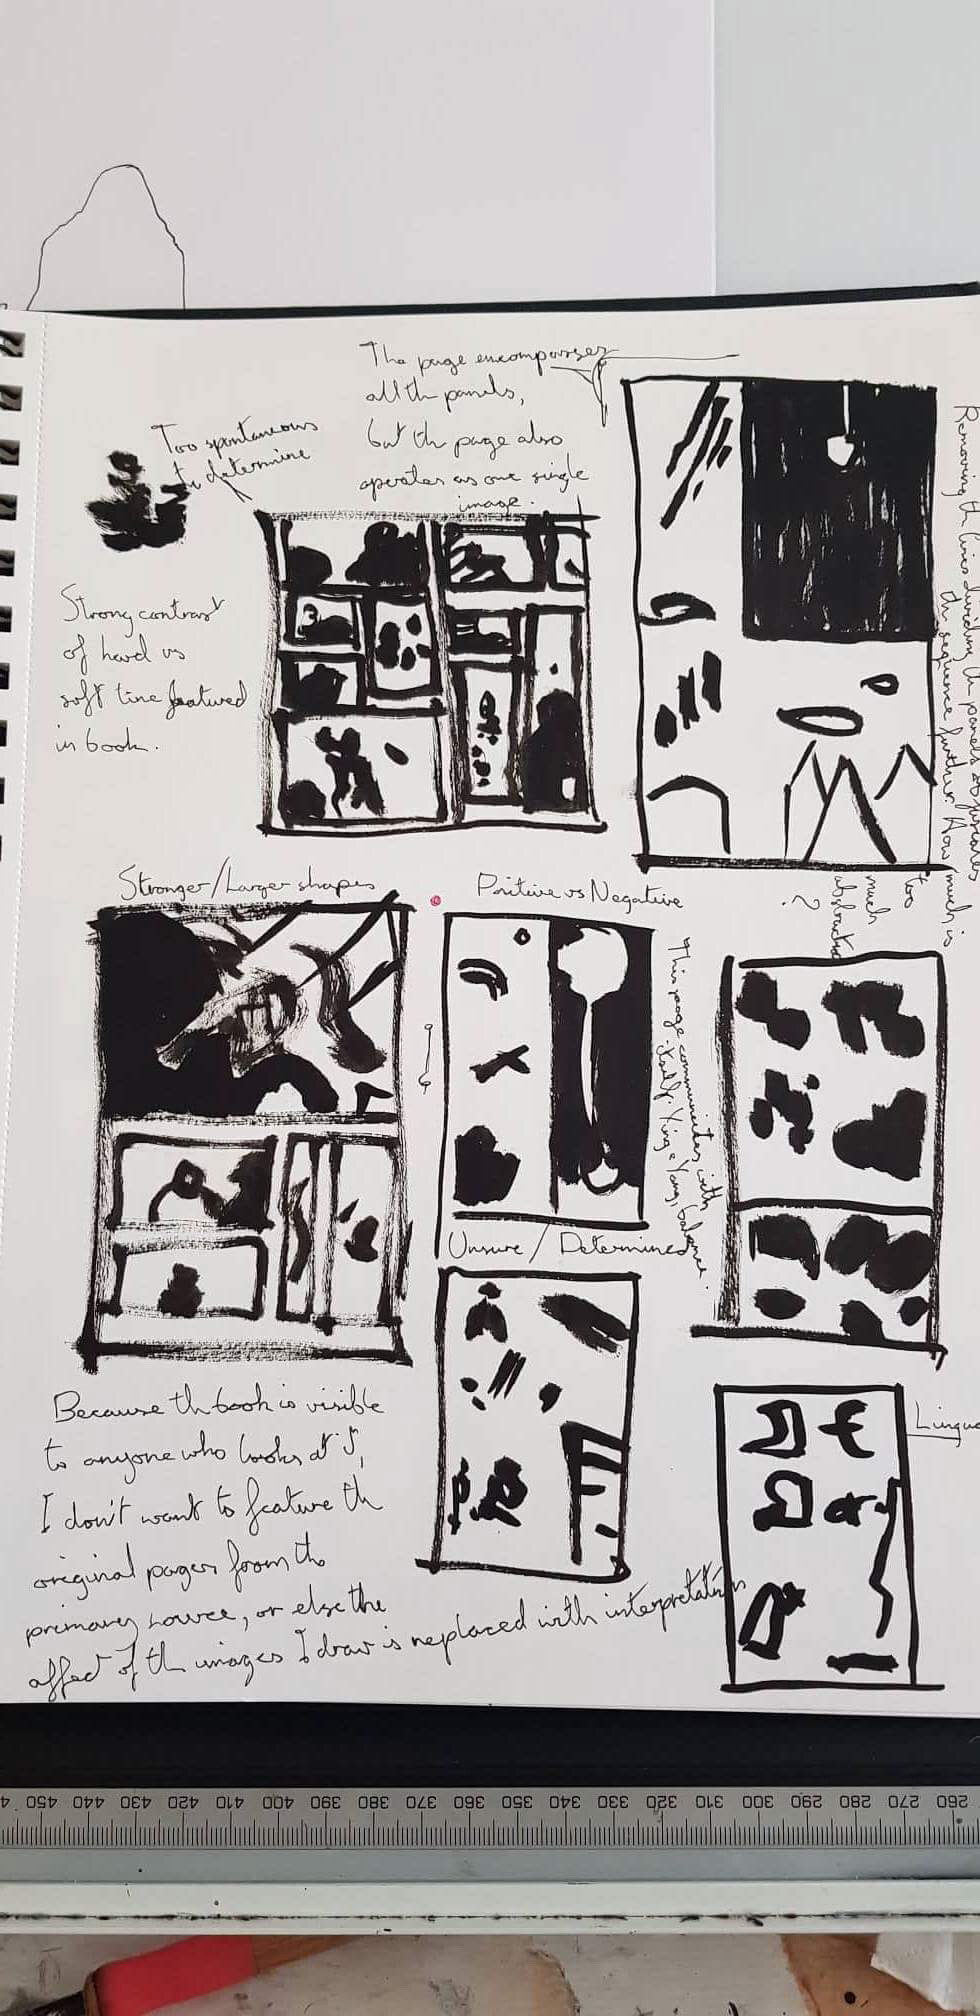 The page encompasses
all the panels,
but the page also
operates as one single
image.
Too spontaneous
to determine
Strong contrast
of hard vs
soft line featured
in book.
Removing the lines dividing the panels
the sequence further. How much is
too
much
abstraction
?
Stronger/Larger shapes
Positive vs Negative
This page communicates with
itself. Ying & Yang/balance.
Unsure / Determined
Because the book is visible
to anyone who looks at it,
I don't want to feature the
original pages from the
primary source, or else the
affect of the images I draw is replaced with interpretation
Lingua
450 440 430 420 410 400 390 380 370 360 350 340 330 320 310 300 290 280 270 260